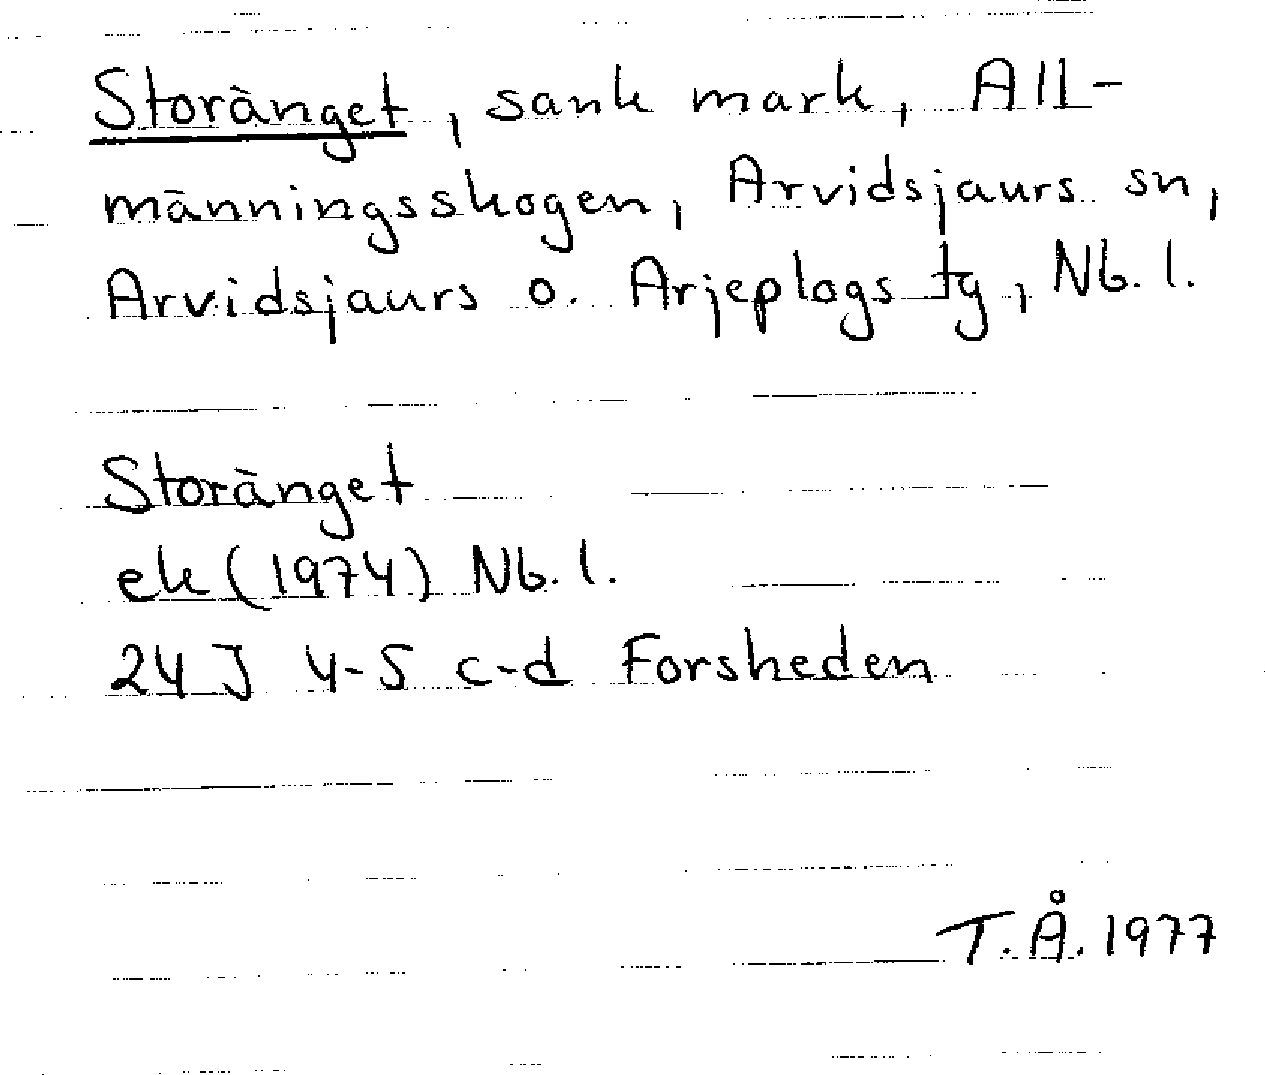 Storänget, sank mark, All-
männingsskogen, Arvidsjaurs sn,
Arvidsjaurs o. Arjeplogs tg, Nb. l.
Storänget
ek (1974) Nb. l.
24 J 4-5 c-d Forsheden
T. Å. 1977